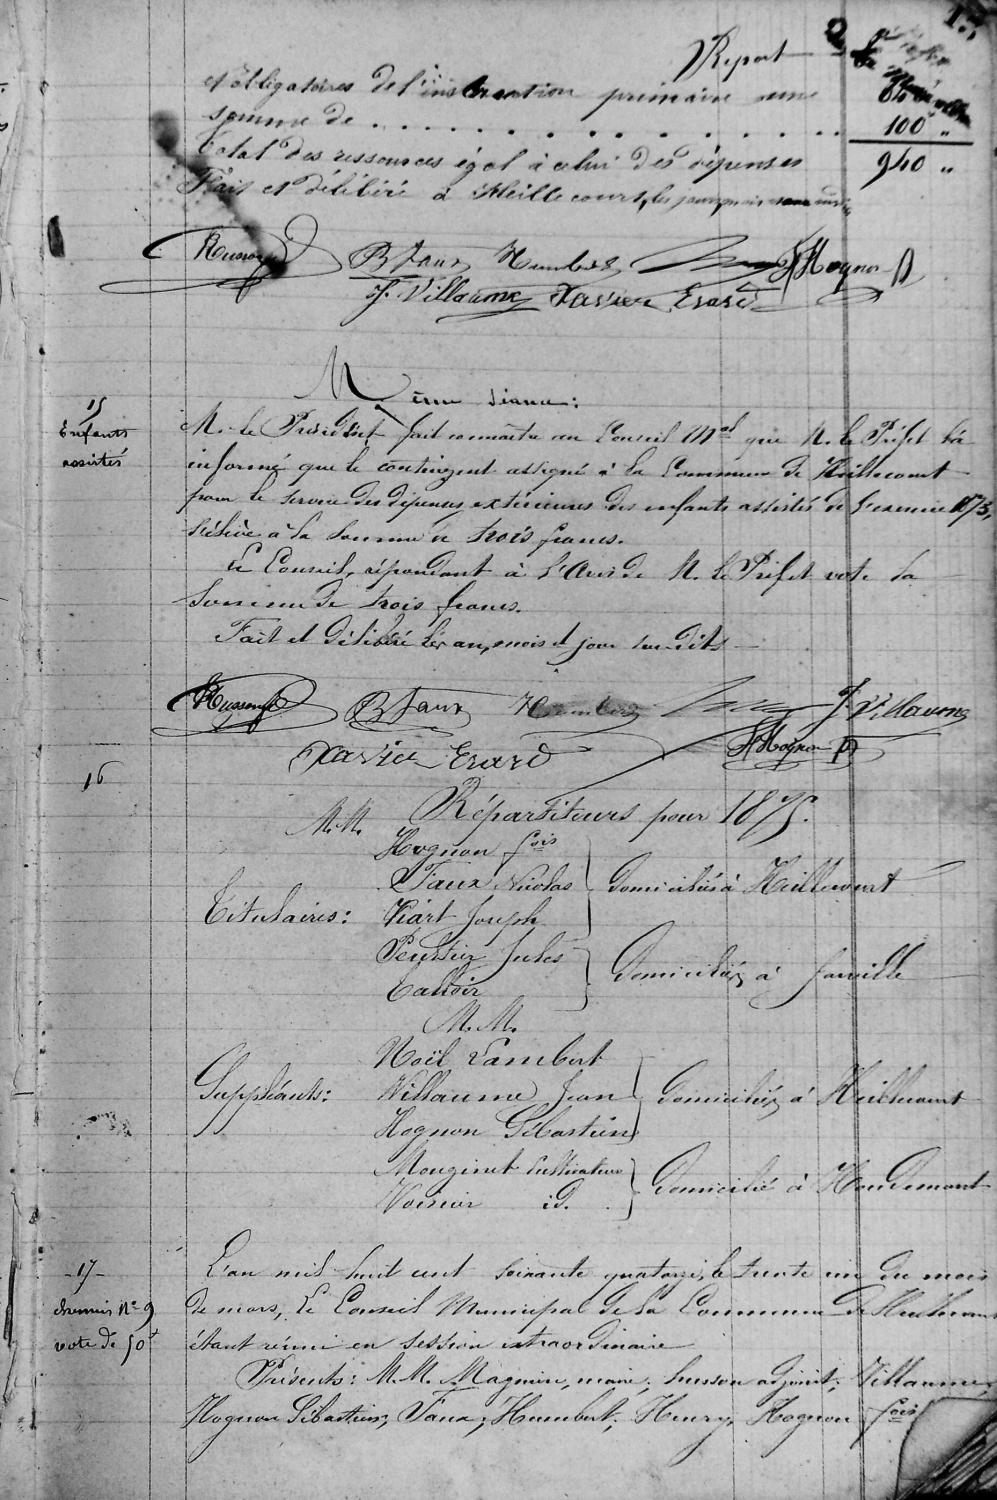 Report
et obligatoires de l'instruction primaire une
somme de . . . . . . . . . . . . . . . . 100 "
Total des ressources égal à celui des dépenses 940 "
Fait et délibéré à Heillecourt, les jour, mois
Husson B Faux Humbert Hognon
J. Villaume Xavier Erard
Même séance:
15
Enfants
assistés
M. le Président fait connaître au Conseil Mal que M. le Préfet l'a
informé que le contingent assigné à la Commune de Heillecourt
pour le service des dépenses extérieures des enfants assistés de l'exercice 1875,
s'élève à la somme de trois francs.
Le Conseil, répondant à l'Avis de M. le Préfet vote la
somme de trois francs.
Fait et délibéré les an, mois et jour sus-dits
Husson B Faux Humbert J. Villaume
Xavier Erard Hognon
16
Répartiteurs pour 1875.
M.M.
Hognon fois
Faux Nicolas domiciliés à Heillecourt
Titulaires: Viart Joseph
Jules
domiciliés à Jarville
M.M.
Noël Lambert
Suppléants: Villaume Jean domiciliés à Heillecourt
Hognon Sébastien
Mouginet Cultivateur
Voirin id. domicilié à Houdemont
-17-
chemin No 9
vote de 50f
L'an mil huit cent soixante quatorze, le trente un du mois
de mars, Le Conseil Municipal de la Commune de Heillecourt
étant réuni en session extraordinaire
Présents: M.M. Magnin, maire; husson adjoint; Villaume;
Hognon Sébastien; Faux; Humbert; Henry; Hognon fois